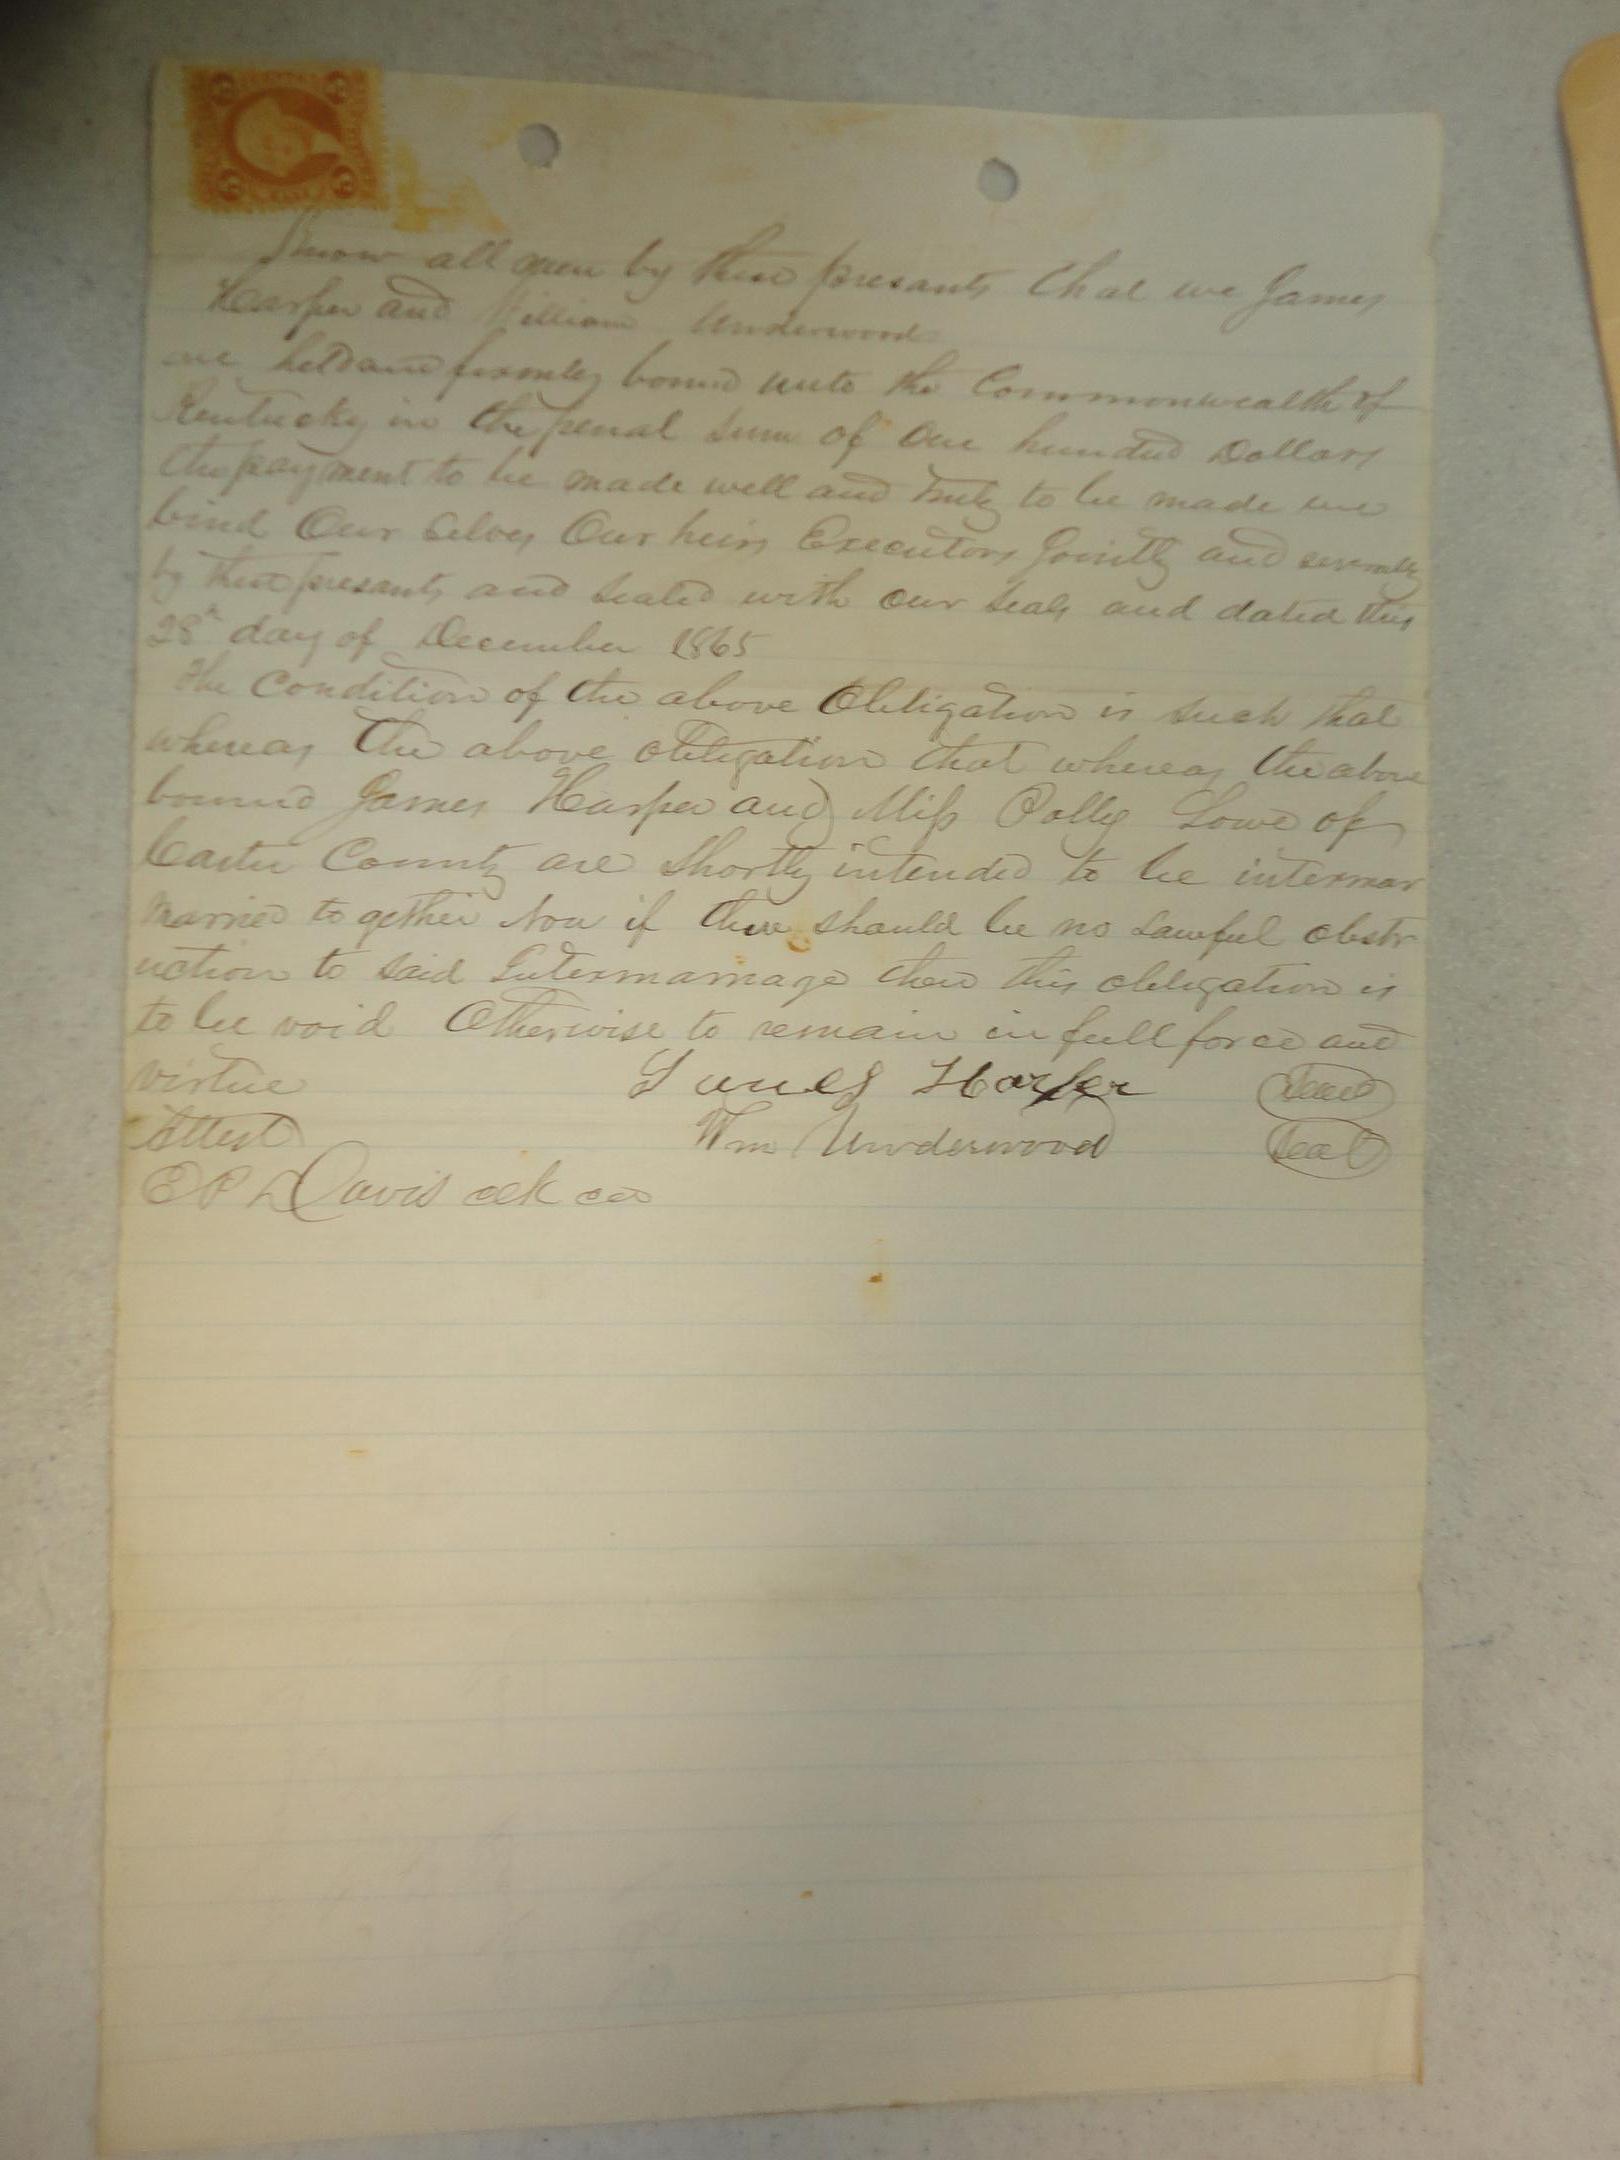 Know all men by these presants that we James
Harper and William Underwood
are held and firmly bound unto the Commonwealth of
Kentucky in the penal sum of One hundred Dollars
the payment to be made well and truly to be made we
bind Our Selves Our heirs Executors Jointly and severally
by these presants and sealed with our seals and dated this
28th day of December 1865
The Condition of the above Obligation is such that
whereas the above obligation that whereas the above
bound James Harper and Miss Polly Lowe of
Carter County are Shortly intended to be intermar
married to gether Now if there should be no Lawful obstr
uction to said Intermarriage then this obligation is
to be void Otherwise to remain in full force and
virtue James Harper Seal
Attest Wm Underwood Seal
E P Davis clk